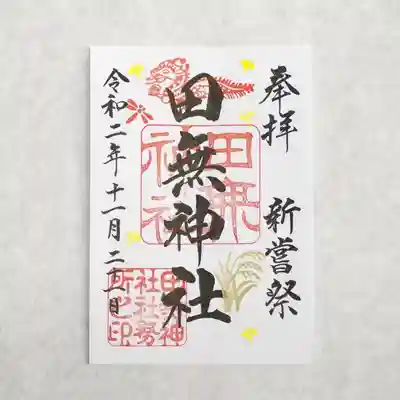 奉拝 新嘗祭
田無神社
令和二年十一月二十一日
田無神社
田無神社社務所之印